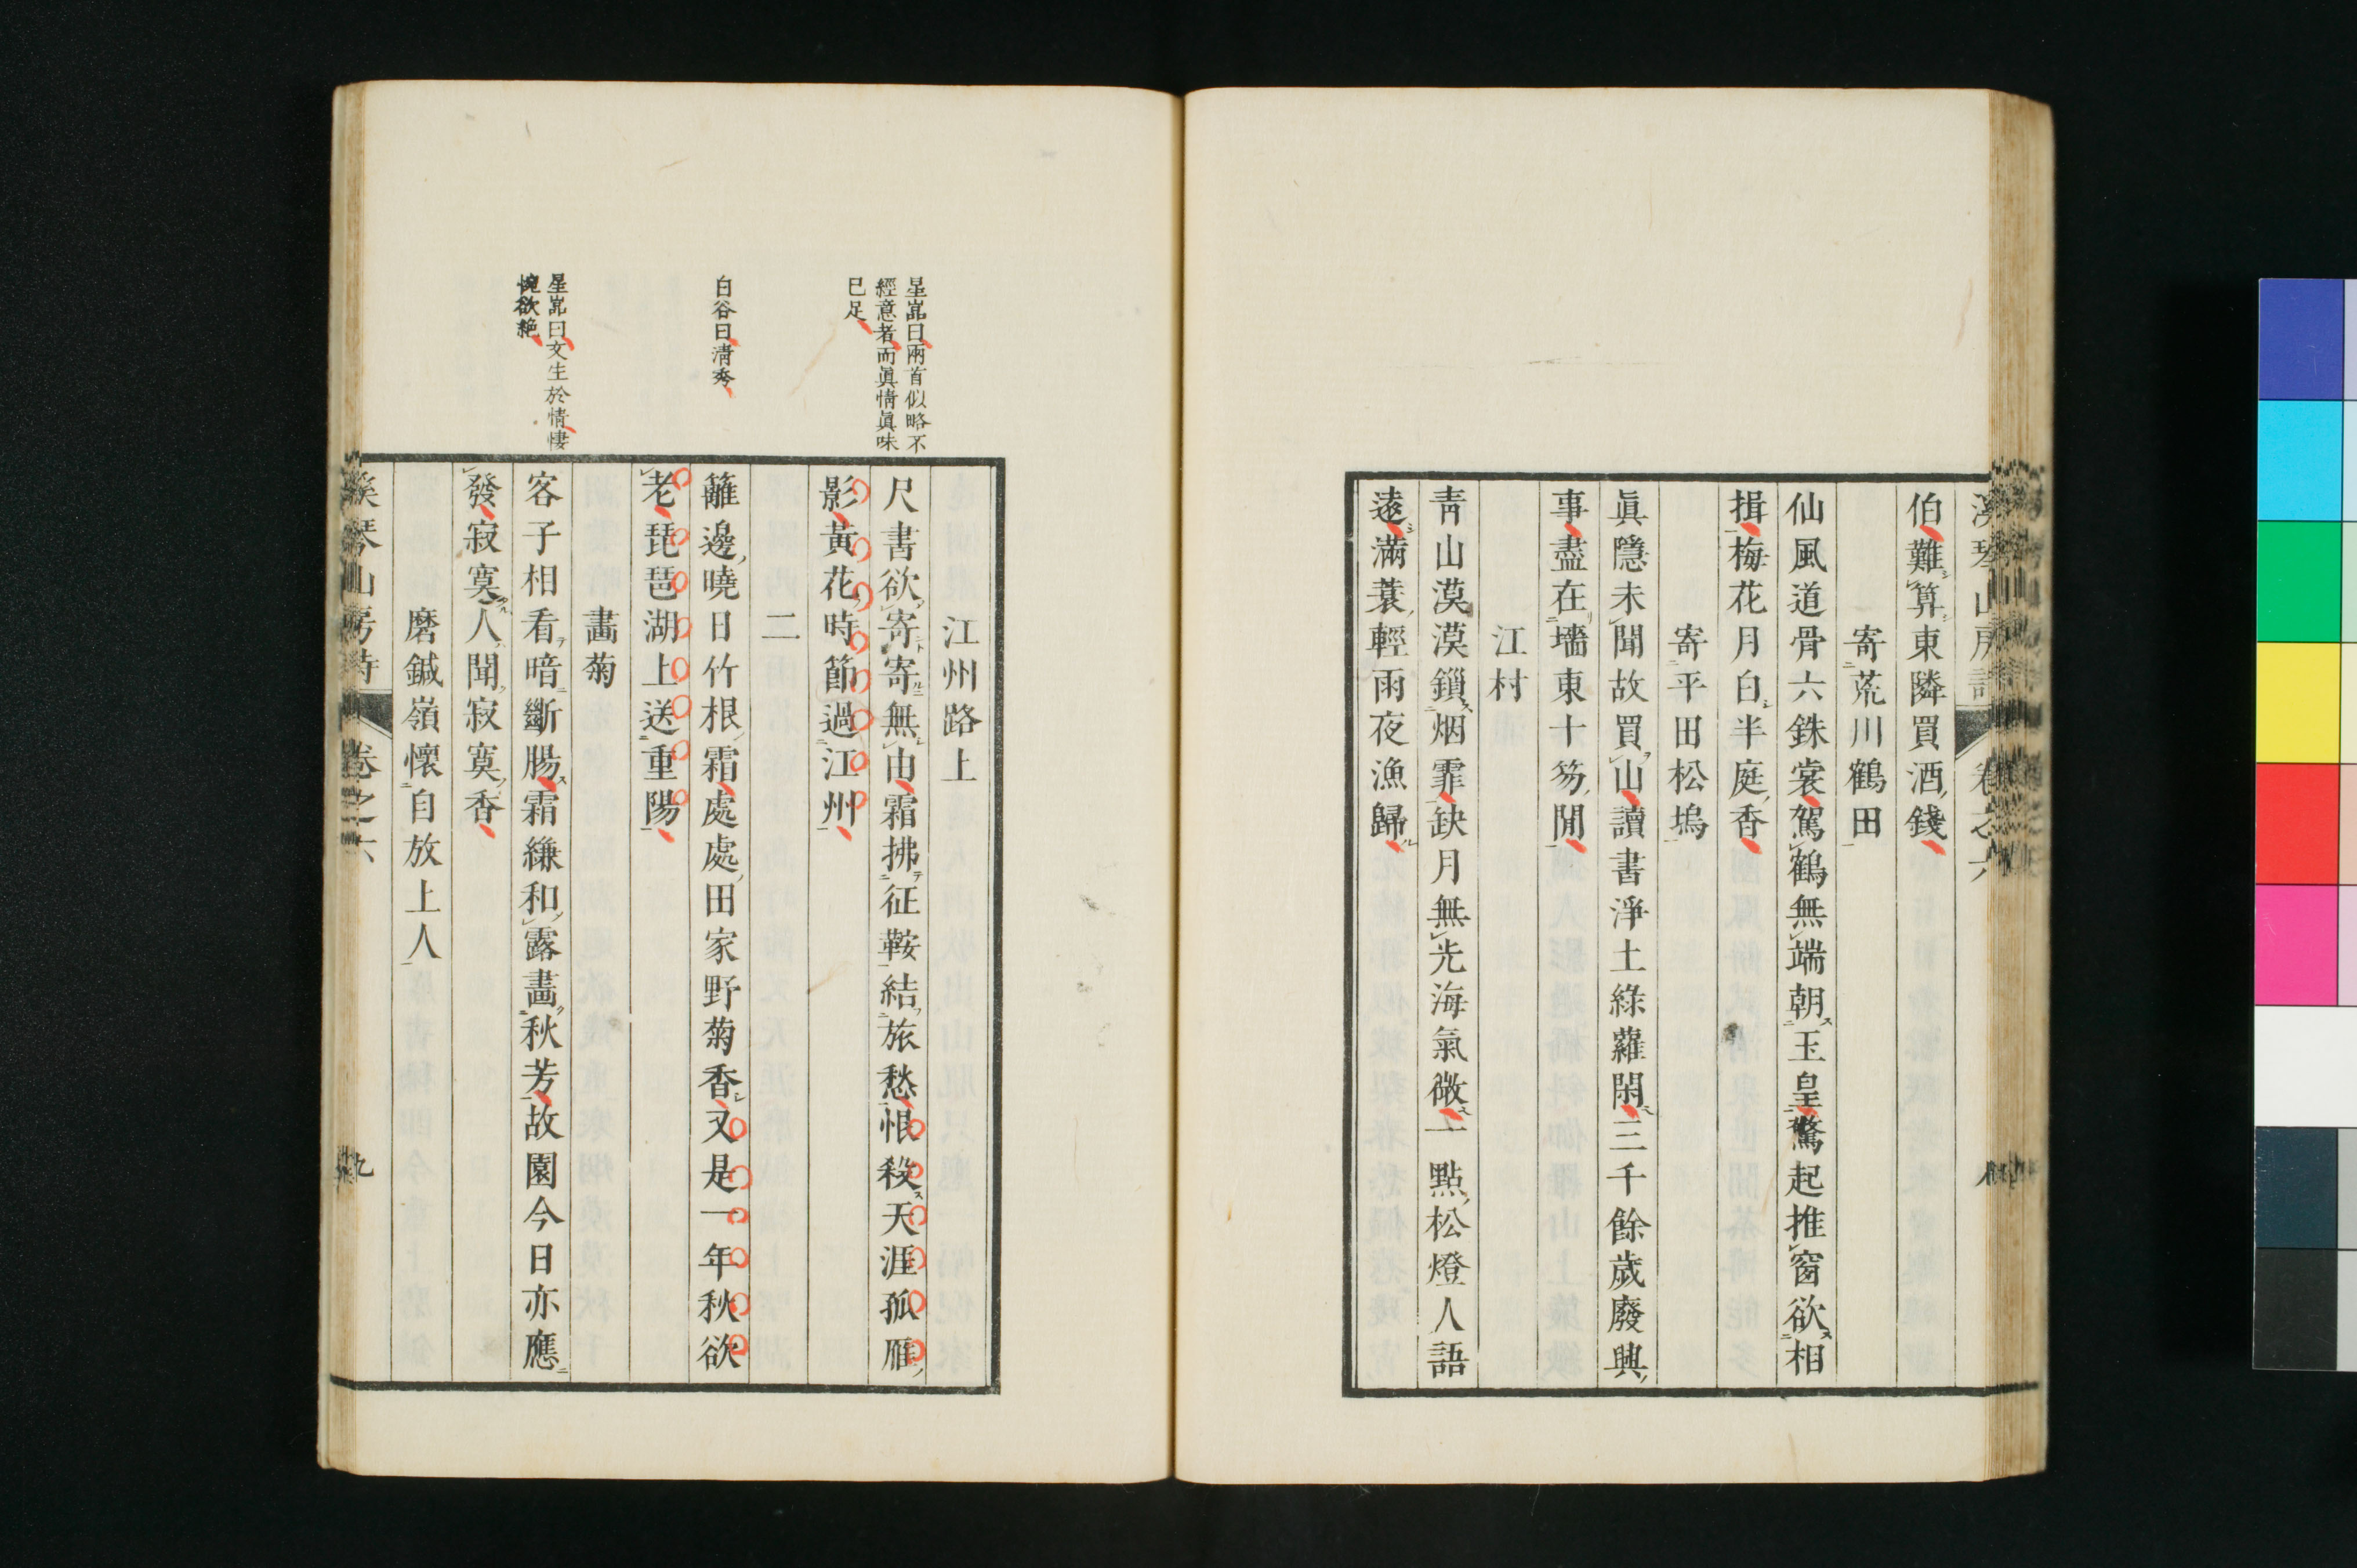 伯難算東隣買酒錢
寄荒川鶴田
仙風道骨六銖裳駕鶴無端朝玉皇驚起推窗欲相
揖梅花月白半庭香
寄平田松塢
眞隱未聞故買山讀書淨土綠蘿閑三千餘歲廢興
事盡在墻東十笏閒
江村
靑山漠漠鎖烟霏缺月無光海氣微一點松燈人語
遠滿蓑輕雨夜漁歸
星嵓曰兩首似略不
經意者而眞情眞味
已足
白谷曰淸秀
星嵓曰文生於情悽
惋欲絶
江州路上
尺書欲寄寄無由霜拂征鞍結旅愁恨殺天涯孤雁
影黃花時節過江州
二
籬邊曉日竹根霜處處田家野菊香又是一年秋欲
老琵琶湖上送重陽
畵菊
客子相看暗斷腸霜縑和露畵秋芳故園今日亦應
發寂寞人聞寂寞香
磨鍼嶺懷自放上人
卷之六
九